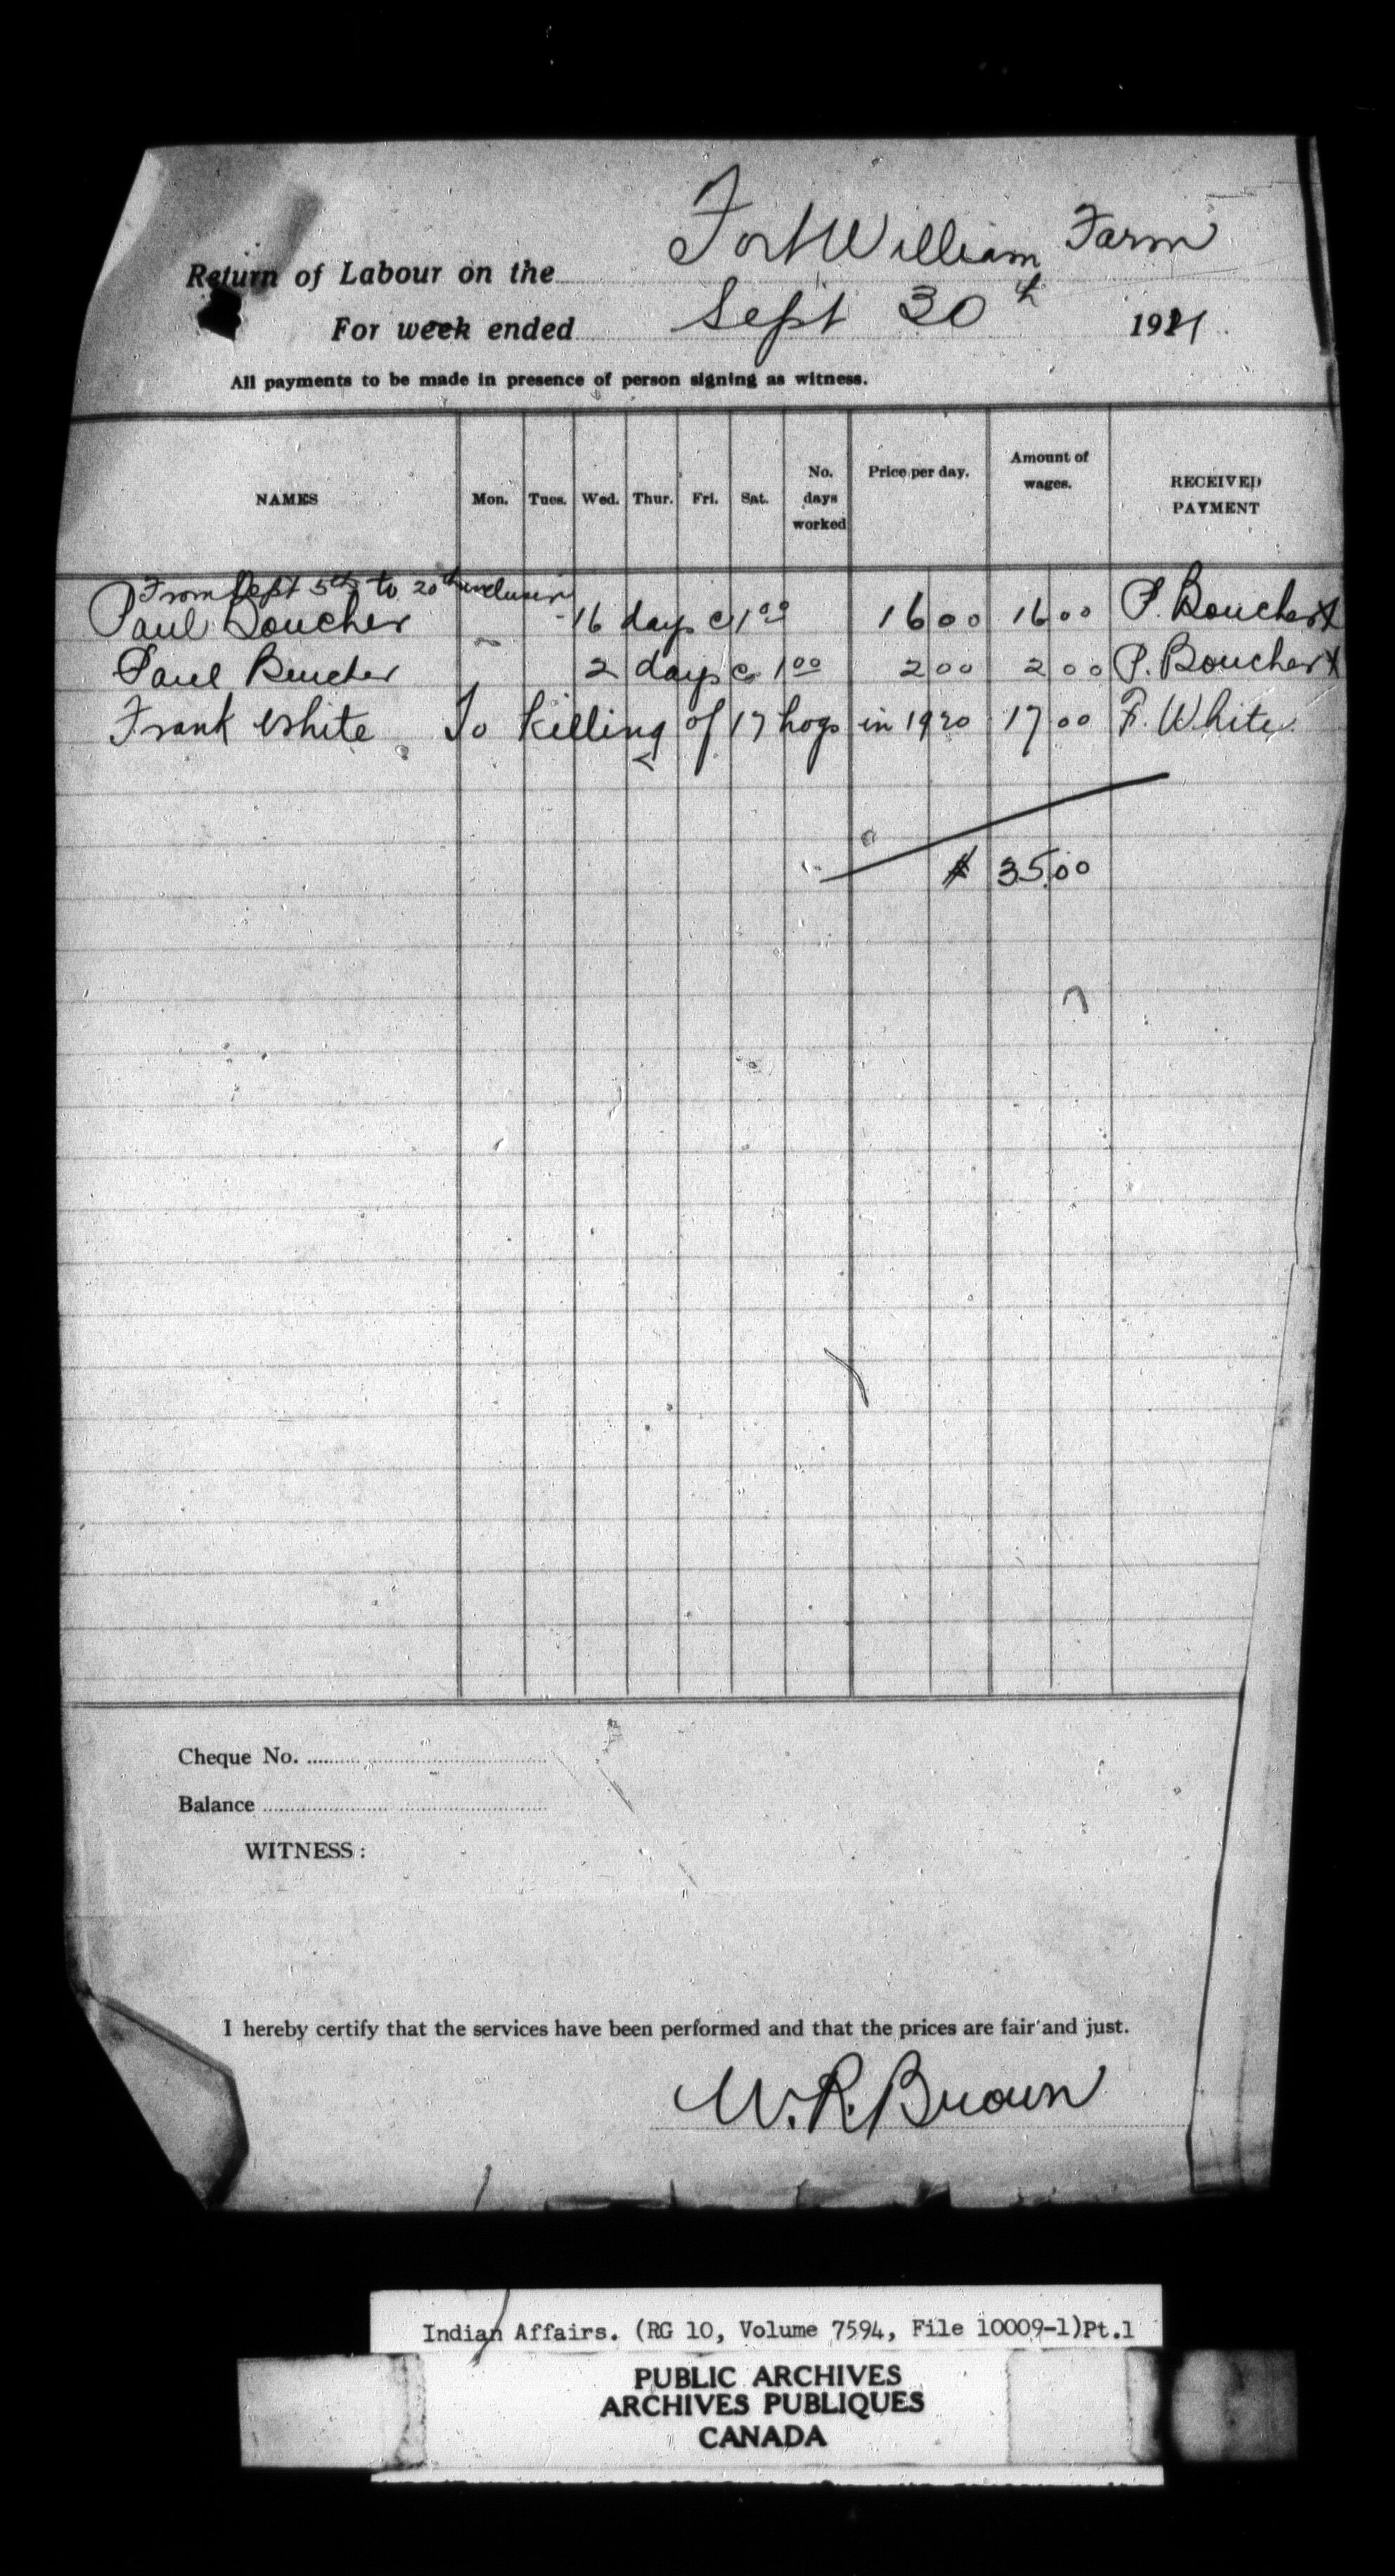 Return of Labour on the Fort William Farm
For week ended Sept 30th 1921
All payments to be made in presence of person signing as witness.
NAMES Mon. Tues. Wed. Thur. Fri. Sat. No. days worked Price per day. Amount of wages. RECEIVED PAYMENT
From Sept 5th to 20th inclusive
Paul Boucher 16 days @ 1 00 16 00 16 00 P. Boucher X
Paul Boucher 2 days @ 1 00 2 00 2 00 P. Boucher X
Frank White To Killing of 17 hogs in 1920 17 00 F. White
$ 35.00
Cheque No.
Balance
WITNESS:
I hereby certify that the services have been performed and that the prices are fair and just.
W. R. Brown
Indian Affairs. (RG 10, Volume 7594, File 10009-1)Pt.1
PUBLIC ARCHIVES
ARCHIVES PUBLIQUES
CANADA